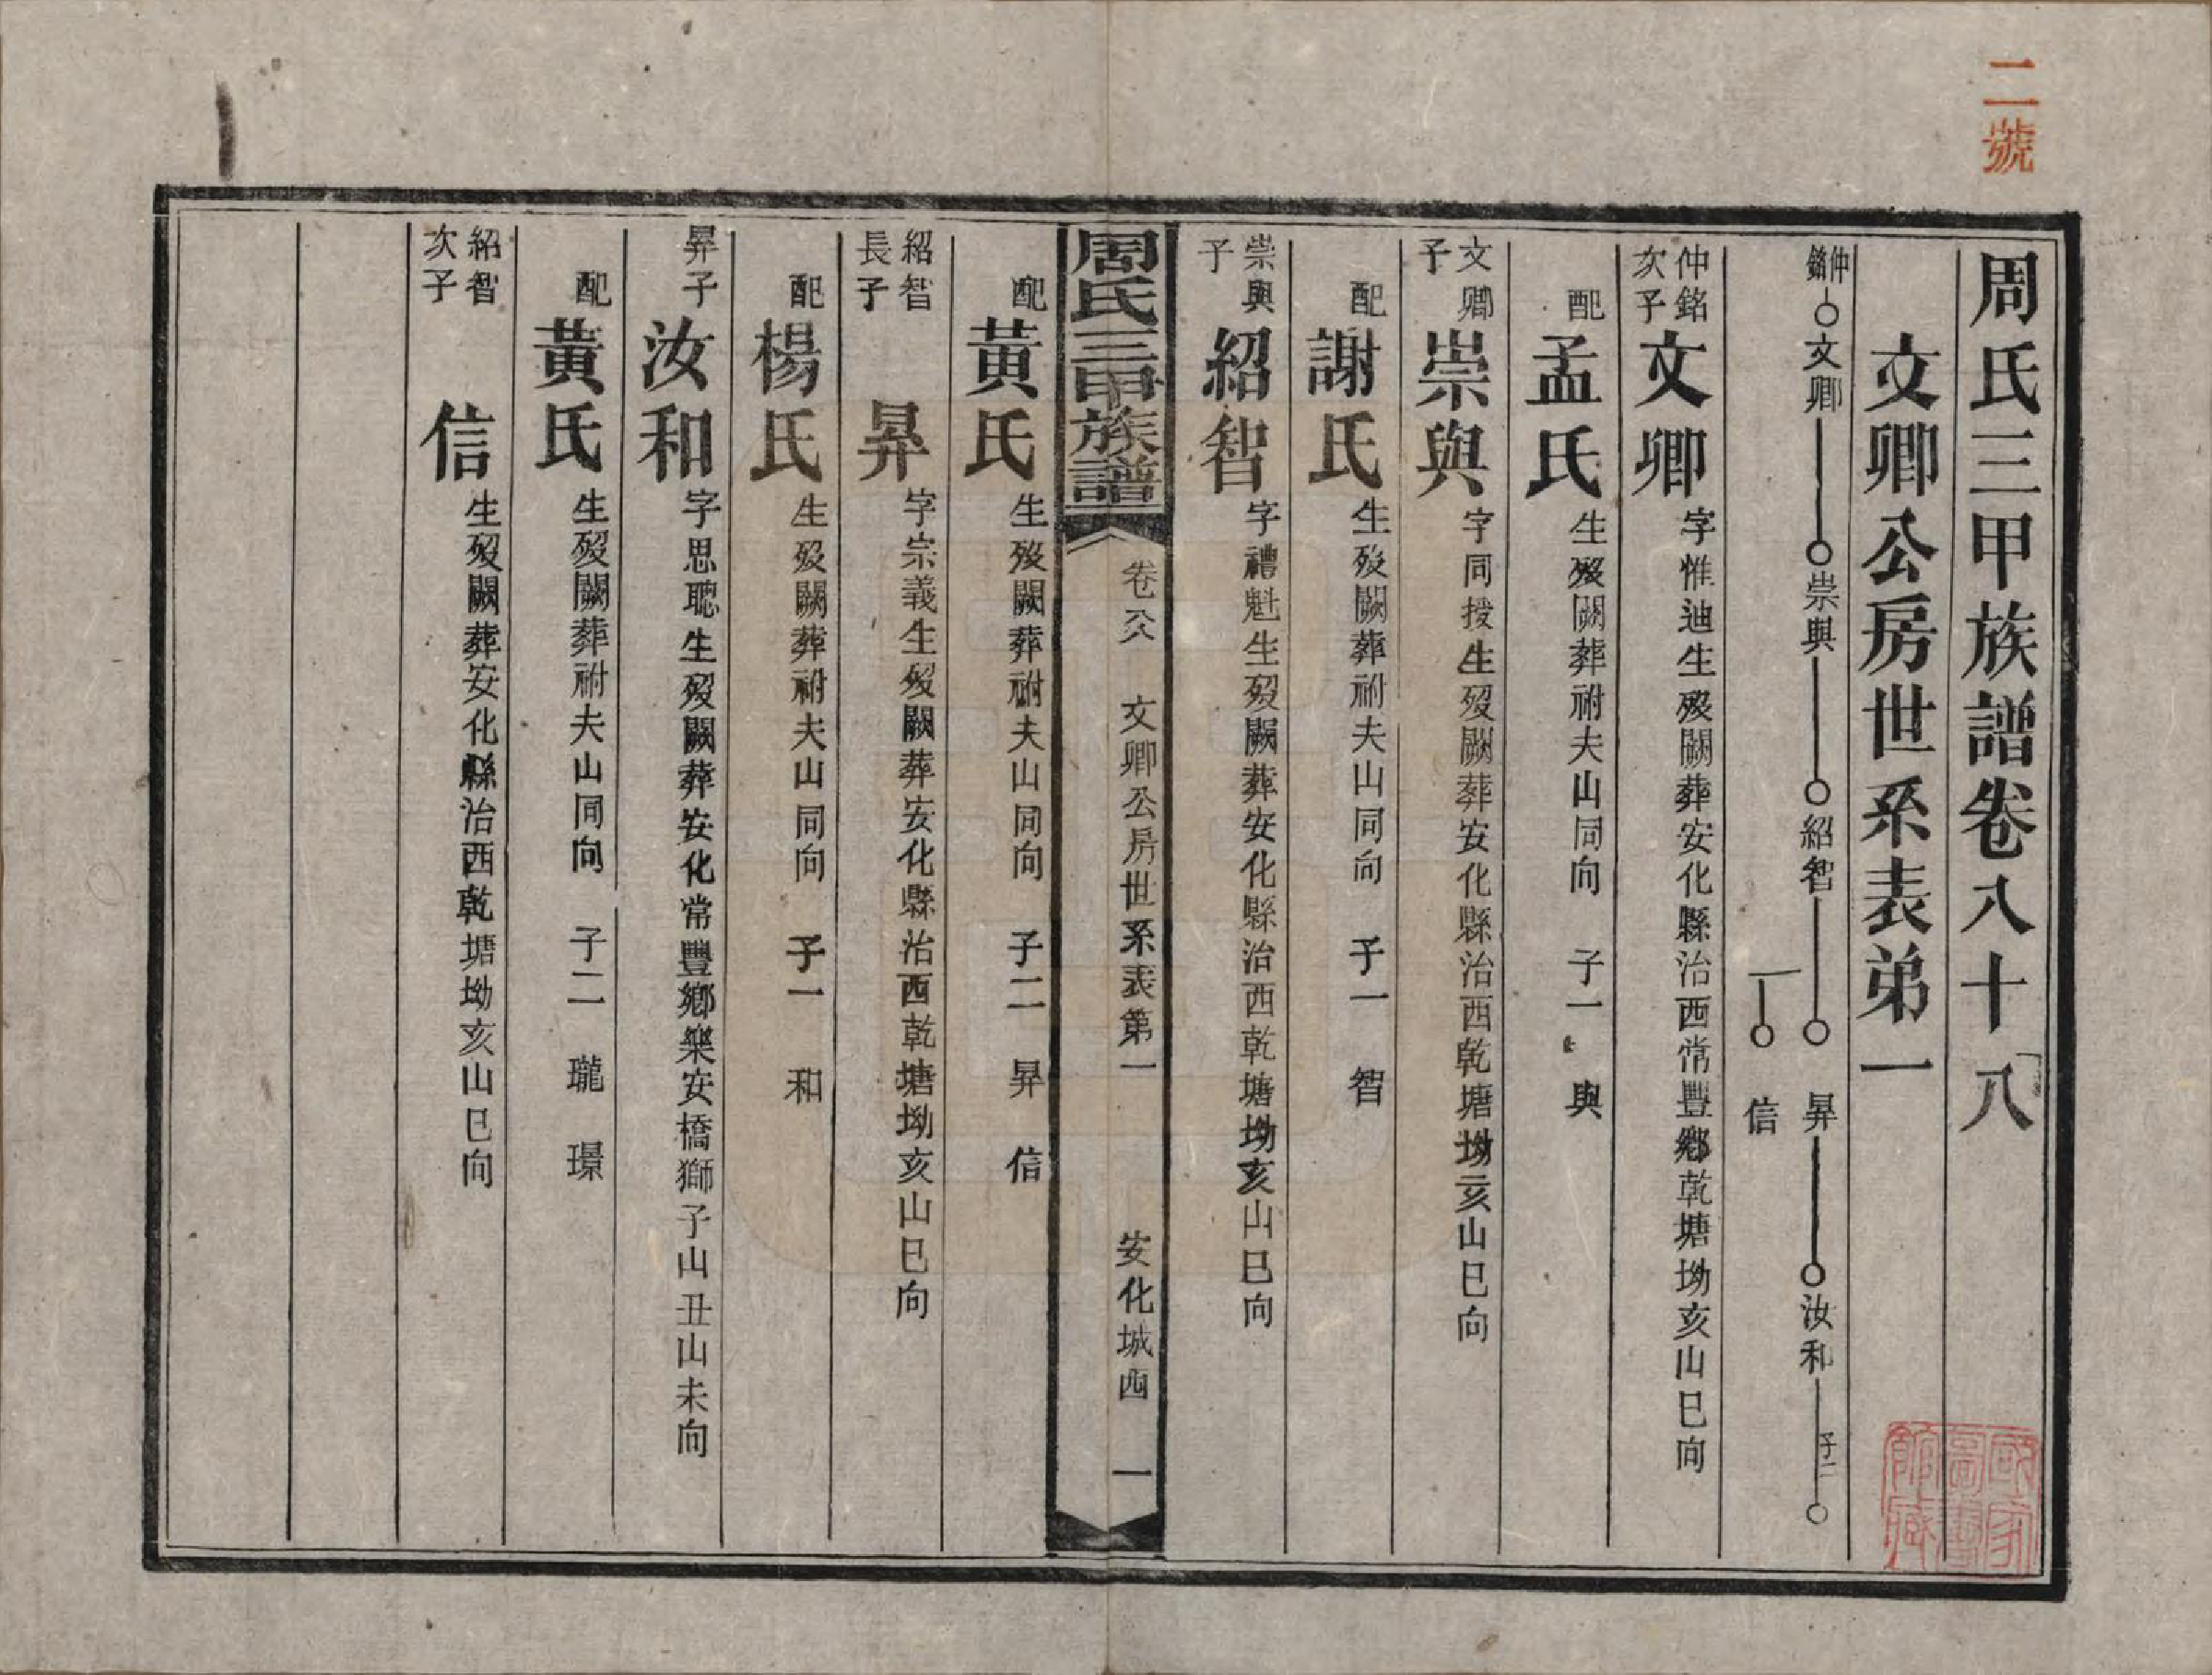 二號
周氏三甲族譜卷八十八
文卿公房世系表弟一
仲銘 文卿 崇與 紹智 昇 汝和 子二
信
仲銘次子 文卿 字惟迪生歿闕葬安化縣治西常豐鄉乾塘坳亥山巳向
配 孟氏 生歿闕葬祔夫山同向 子一 與
文卿子 崇與 字同授生歿闕葬安化縣治西乾塘坳亥山巳向
配 謝氏 生歿闕葬祔夫山同向 子一 智
崇與子 紹智 字禮魁生歿闕葬安化縣治西乾塘坳亥山巳向
周氏三甲族譜 卷八八 文卿公房世系表第一 安化城西 一
配 黃氏 生歿闕葬祔夫山同向 子二 昇 信
紹智長子 昇 字宗義生歿闕葬安化縣治西乾塘坳亥山巳向
配 楊氏 生歿闕葬祔夫山同向 子一 和
昇子 汝和 字思聰生歿闕葬安化常豐鄉樂安橋獅子山丑山未向
配 黃氏 生歿闕葬祔夫山同向 子二 瓏 璟
紹智次子 信 生歿闕葬安化縣治西乾塘坳亥山巳向
國家圖書館藏